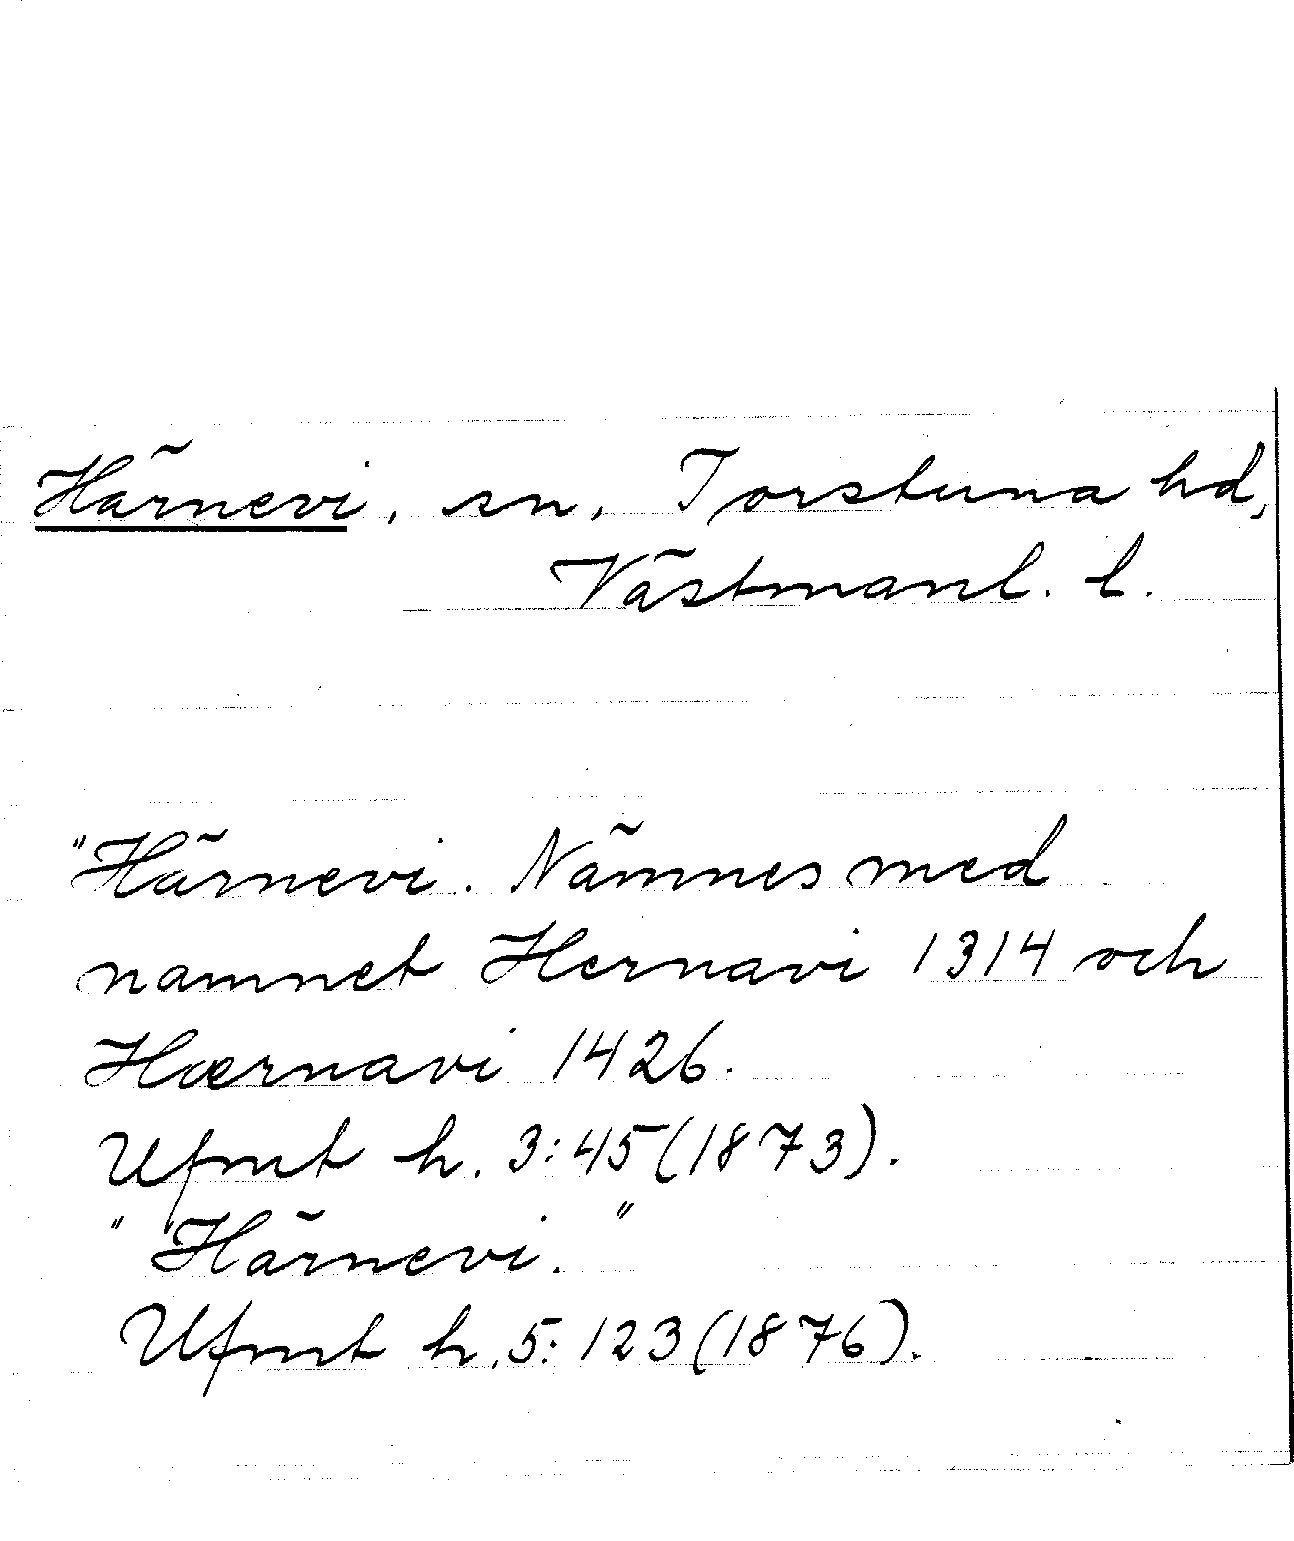 Härnevi, sn, Torstuna hd,
Västmanl. l.
"Härnevi. Nämnes med
namnet Hernavi 1314 och
Hærnavi 1426.
Ufmt h. 3:45 (1873).
" Härnevi."
Ufmt h. 5:123 (1876).